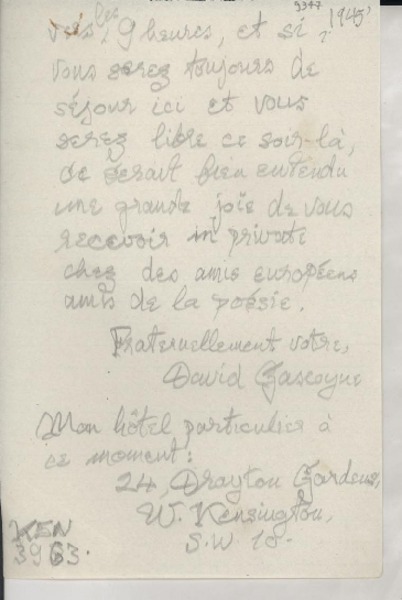 9377
1945?
vers les 9 heures, et si
vous serez toujours de
séjour ici et vous
serez libre ce soir-là,
ce serait bien entendu
une grande joie de vous
recevoir in private
chez des amis européens
amis de la poésie.
Fraternellement votre,
David Gascoyne
Mon hôtel particulier à
ce moment:
24, Drayton Gardens,
W. Kensington,
S.W. 10.
KEN
3963.